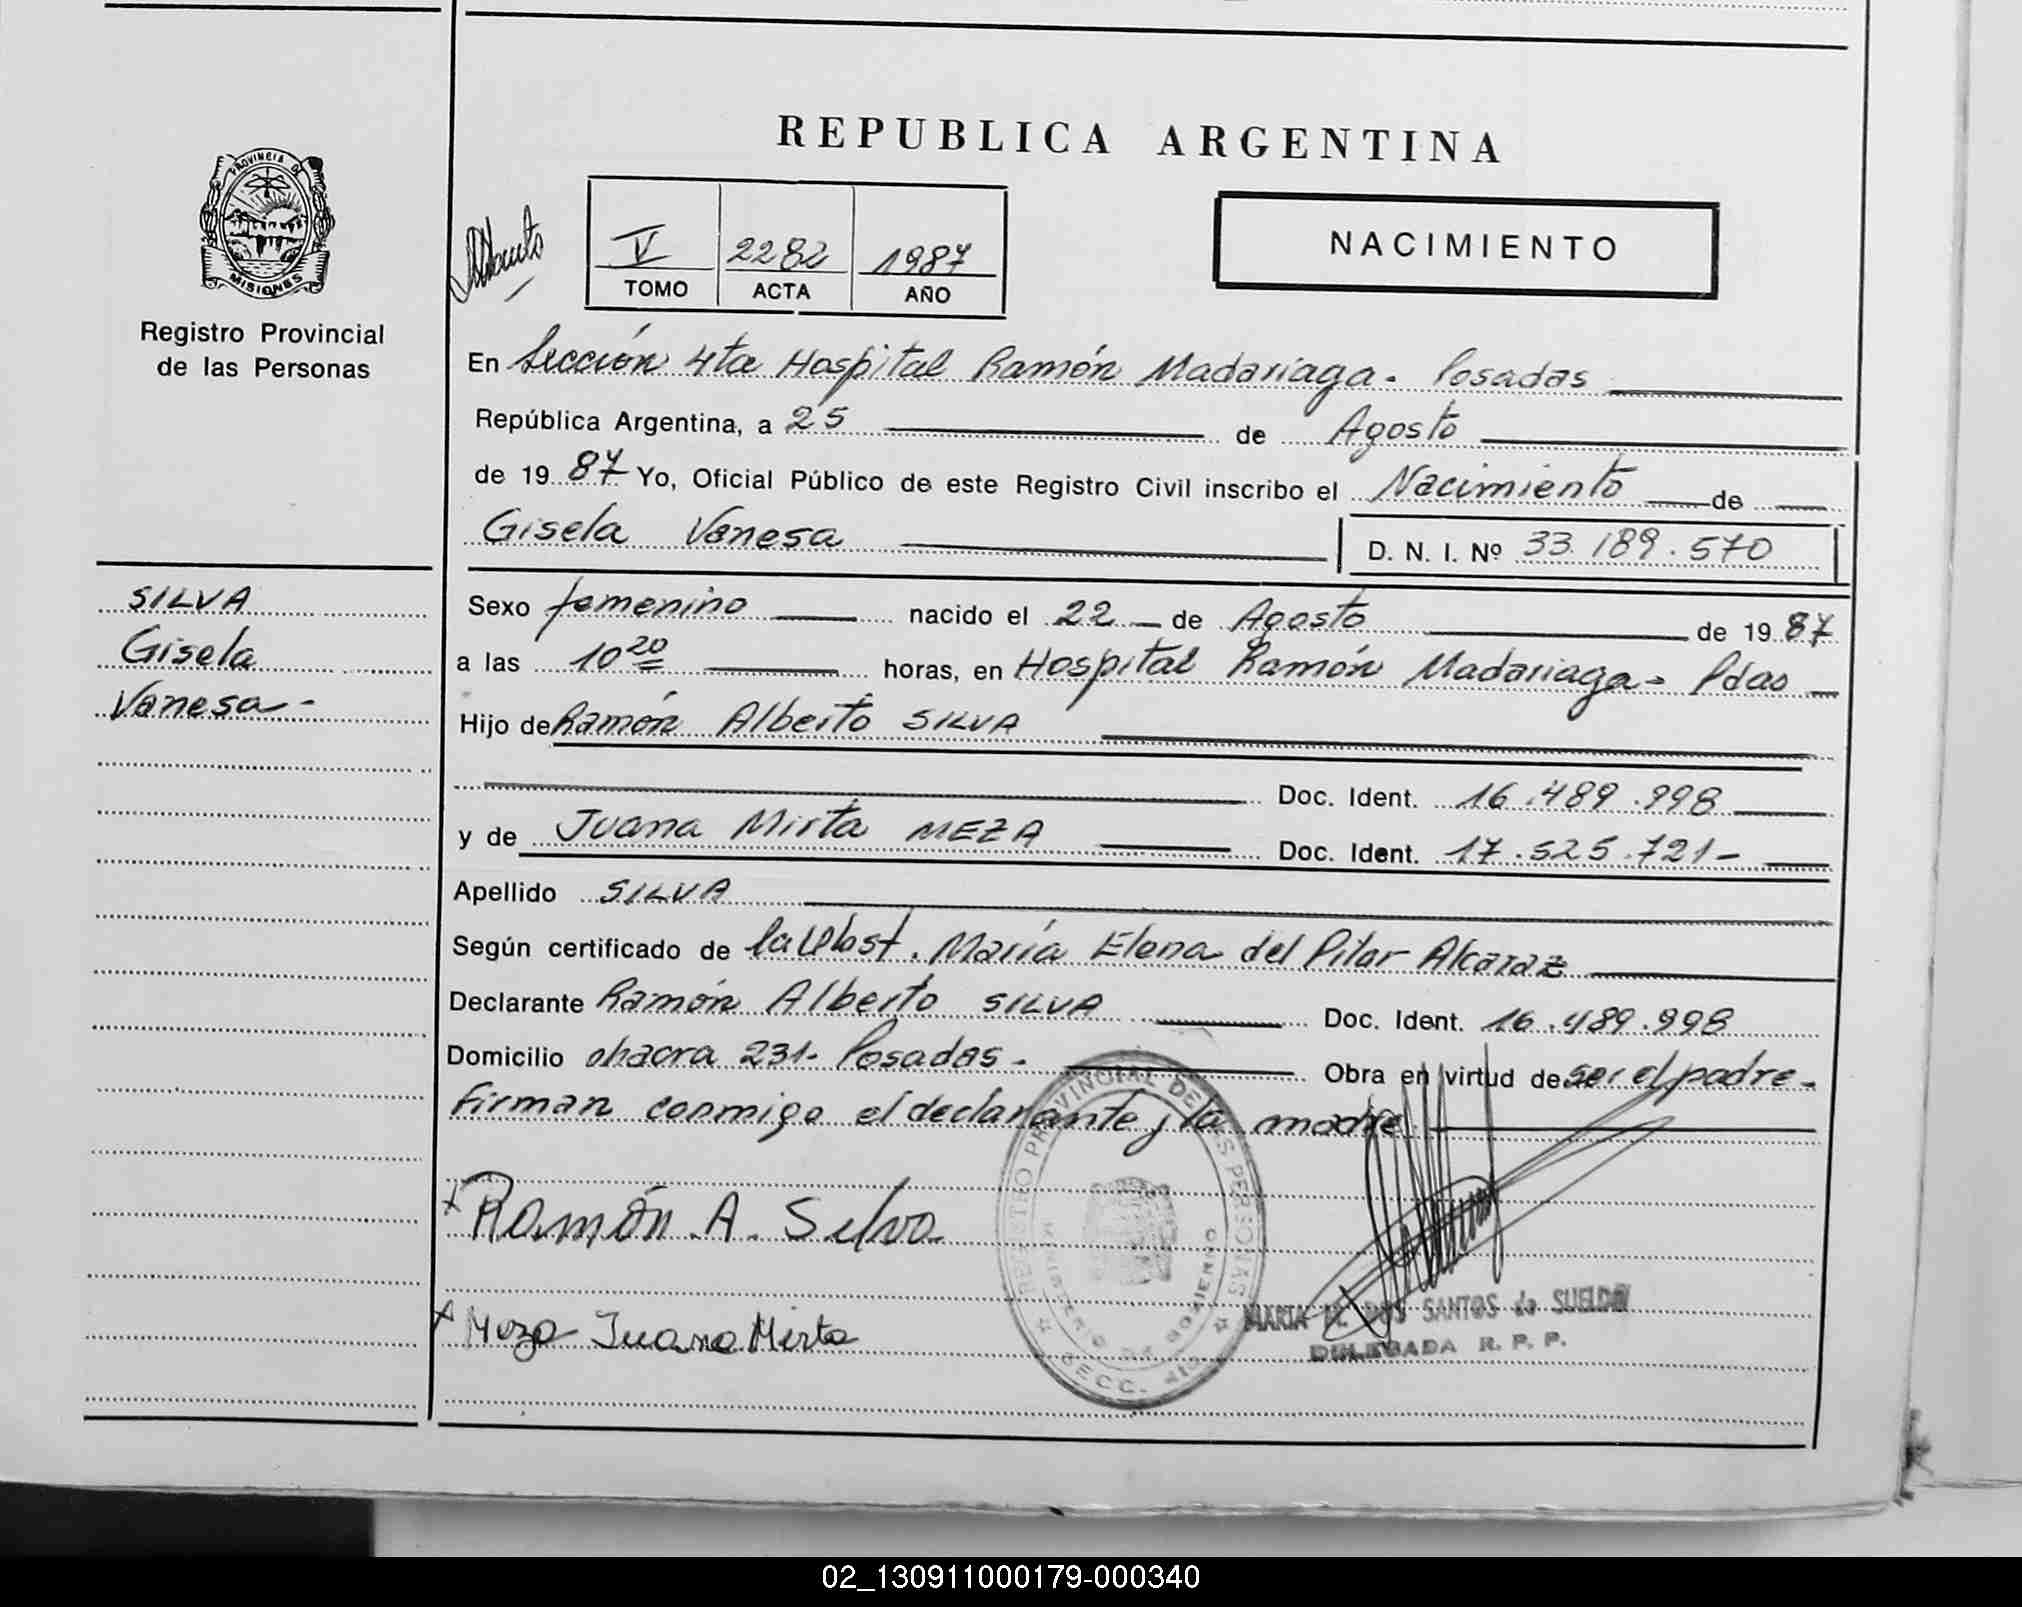 REPUBLICA ARGENTINA
PROVINCIA DE
MISIONES
Registro Provincial
de las Personas
V 2282 1987
TOMO ACTA AÑO
NACIMIENTO
En Sección 4ta Hospital Ramón Madariaga - Posadas
República Argentina, a 25 de Agosto
de 1987 Yo, Oficial Público de este Registro Civil inscribo el Nacimiento de
Gisela Vanesa D. N. I. Nº 33.189.570
SILVA
Gisela
Vanesa -
Sexo femenino nacido el 22 de Agosto de 1987
a las 10 20 horas, en Hospital Ramón Madariaga - Pdas
Hijo de Ramón Alberto SILVA
Doc. Ident. 16.489.998
y de Juana Mirta MEZA Doc. Ident. 17.525.721-
Apellido SILVA
Según certificado de la Obst. María Elena del Pilar Alcaraz
Declarante Ramón Alberto SILVA Doc. Ident. 16.489.998
Domicilio chacra 231- Posadas - Obra en virtud de ser el padre -
firman conmigo el declarante y la madre.
x Ramón A. Silva
x Meza Juana Mirta
REGISTRO PROVINCIAL DE LAS PERSONAS
MINISTERIO DE GOBIERNO
SECC. 4ta
MARTA DOS SANTOS de SUELDO
DELEGADA R. P. P.
02_130911000179-000340